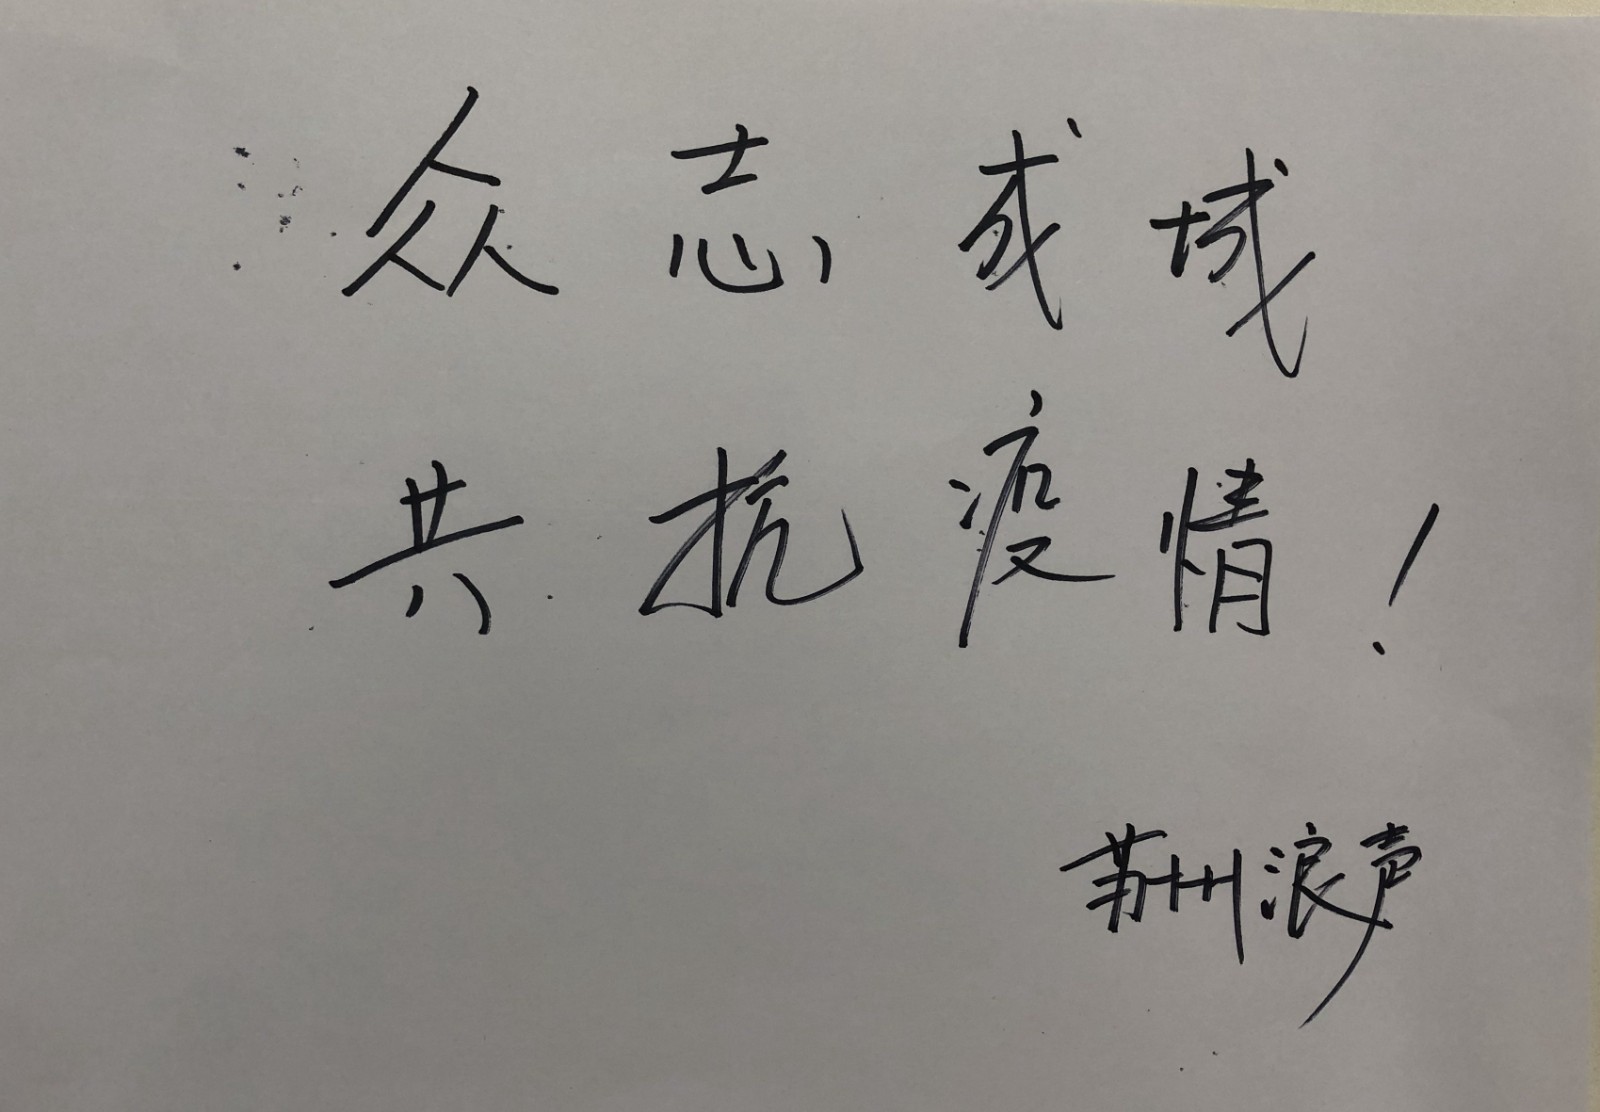 众志成城
共抗疫情!
苏州浪声